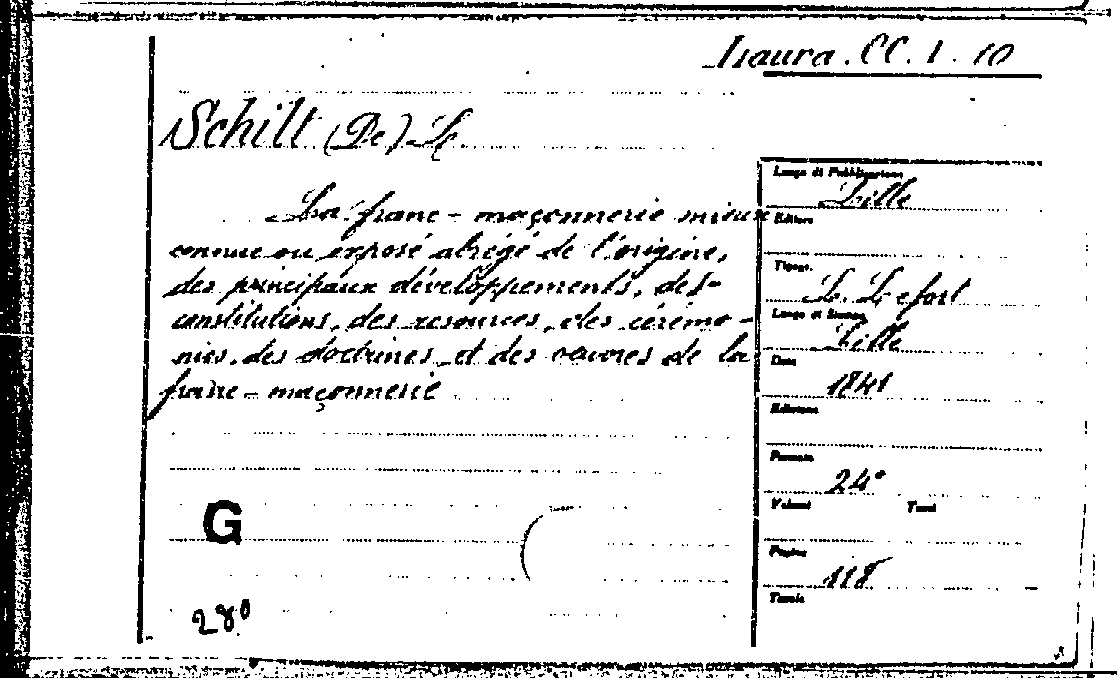 Laura. CC. 1. 10
Schilt (De) L.
La franc-maçonnerie mieux
connue ou exposé abrégé de l'origine,
des principaux développements, des
constitutions, des resources, des cérémo-
nies, des doctrines et des oeuvres de la
franc-maçonnerie
G
280
Luogo di Pubblicazione
Lille
Editore
Tipogr.
L. Lefort
Luogo di Stampa
Lille
Data
1841
Edizione
Formato
24°
Volumi Tomi
Pagine
118
Tavole